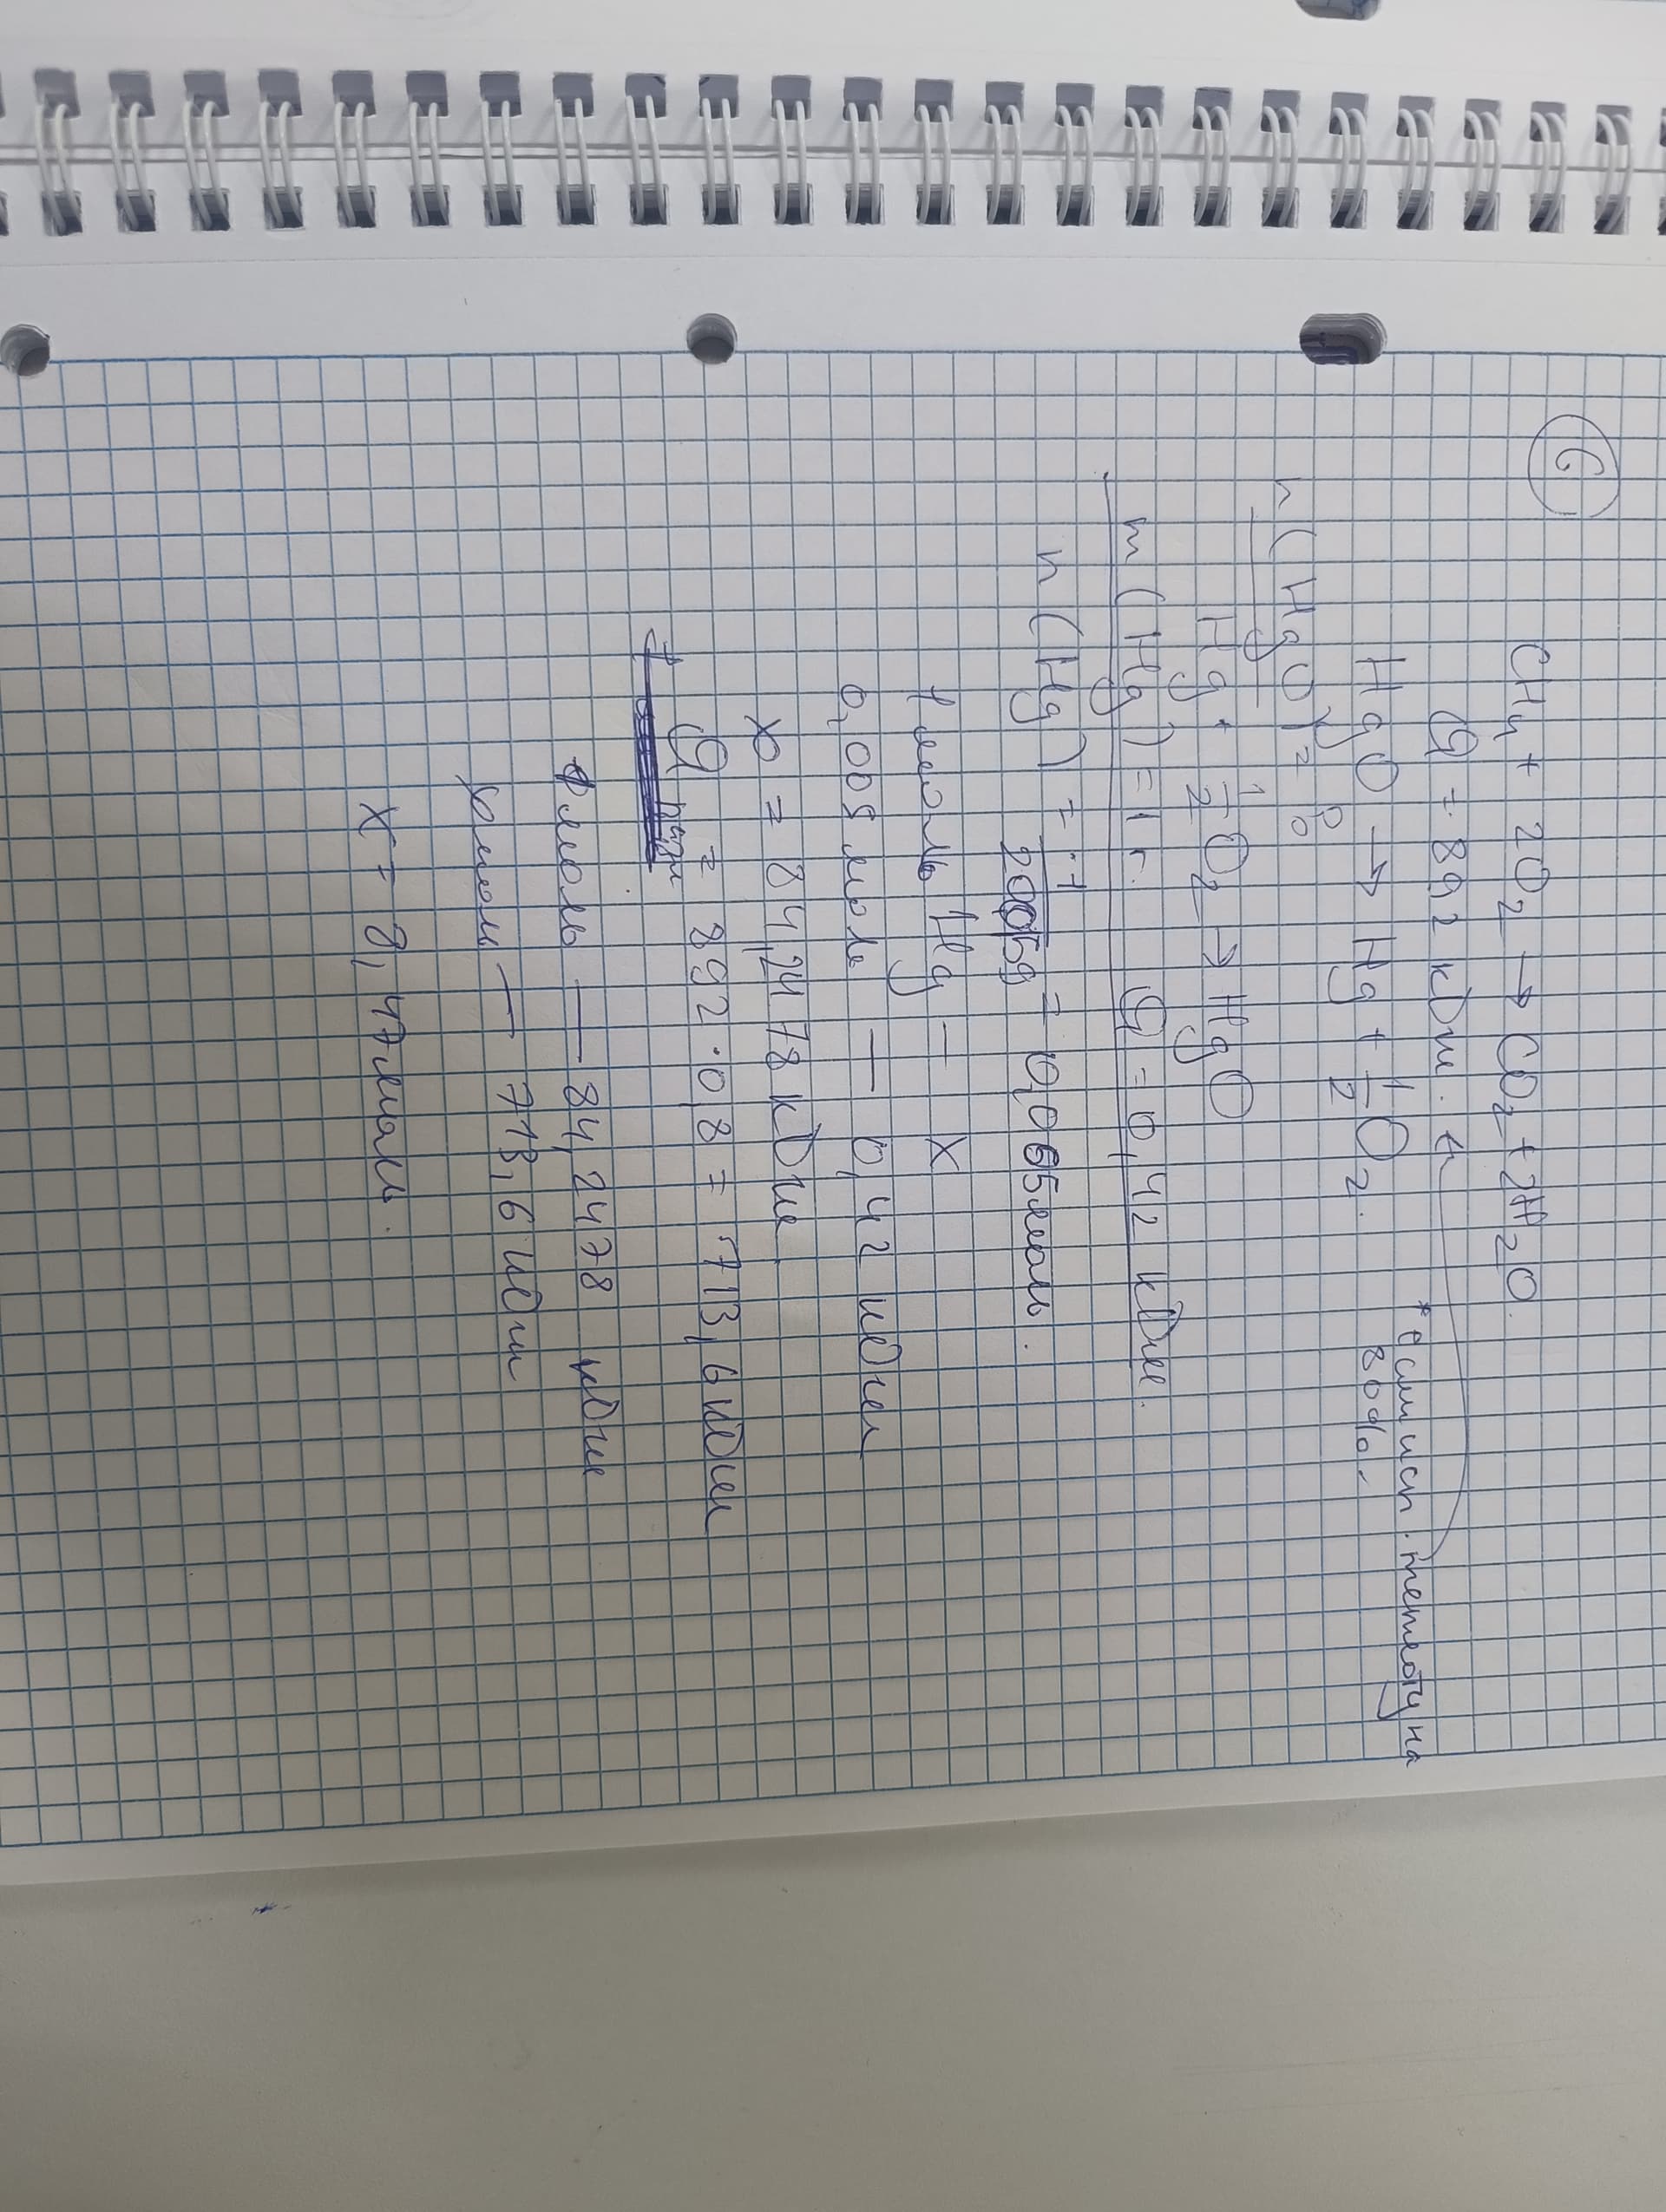 6
CH4 + 2O2 → CO2 + 2H2O.
Q = 892 кДж.
* если исп. теплоту на 80%.
HgO → Hg + 1/2 O2.
n(HgO) = ?
Hg + 1/2 O2 → HgO
m(Hg) = 1 г. Q = 0,42 кДж.
n(Hg) = 1/200,59 = 0,005 моль.
1 моль Hg — x
0,005 моль — 0,42 кДж
x = 84,2478 кДж
Q нужн = 892 · 0,8 = 713,6 кДж
1 моль — 84,2478 кДж
x моль — 713,6 кДж
x = 8,47 моль.